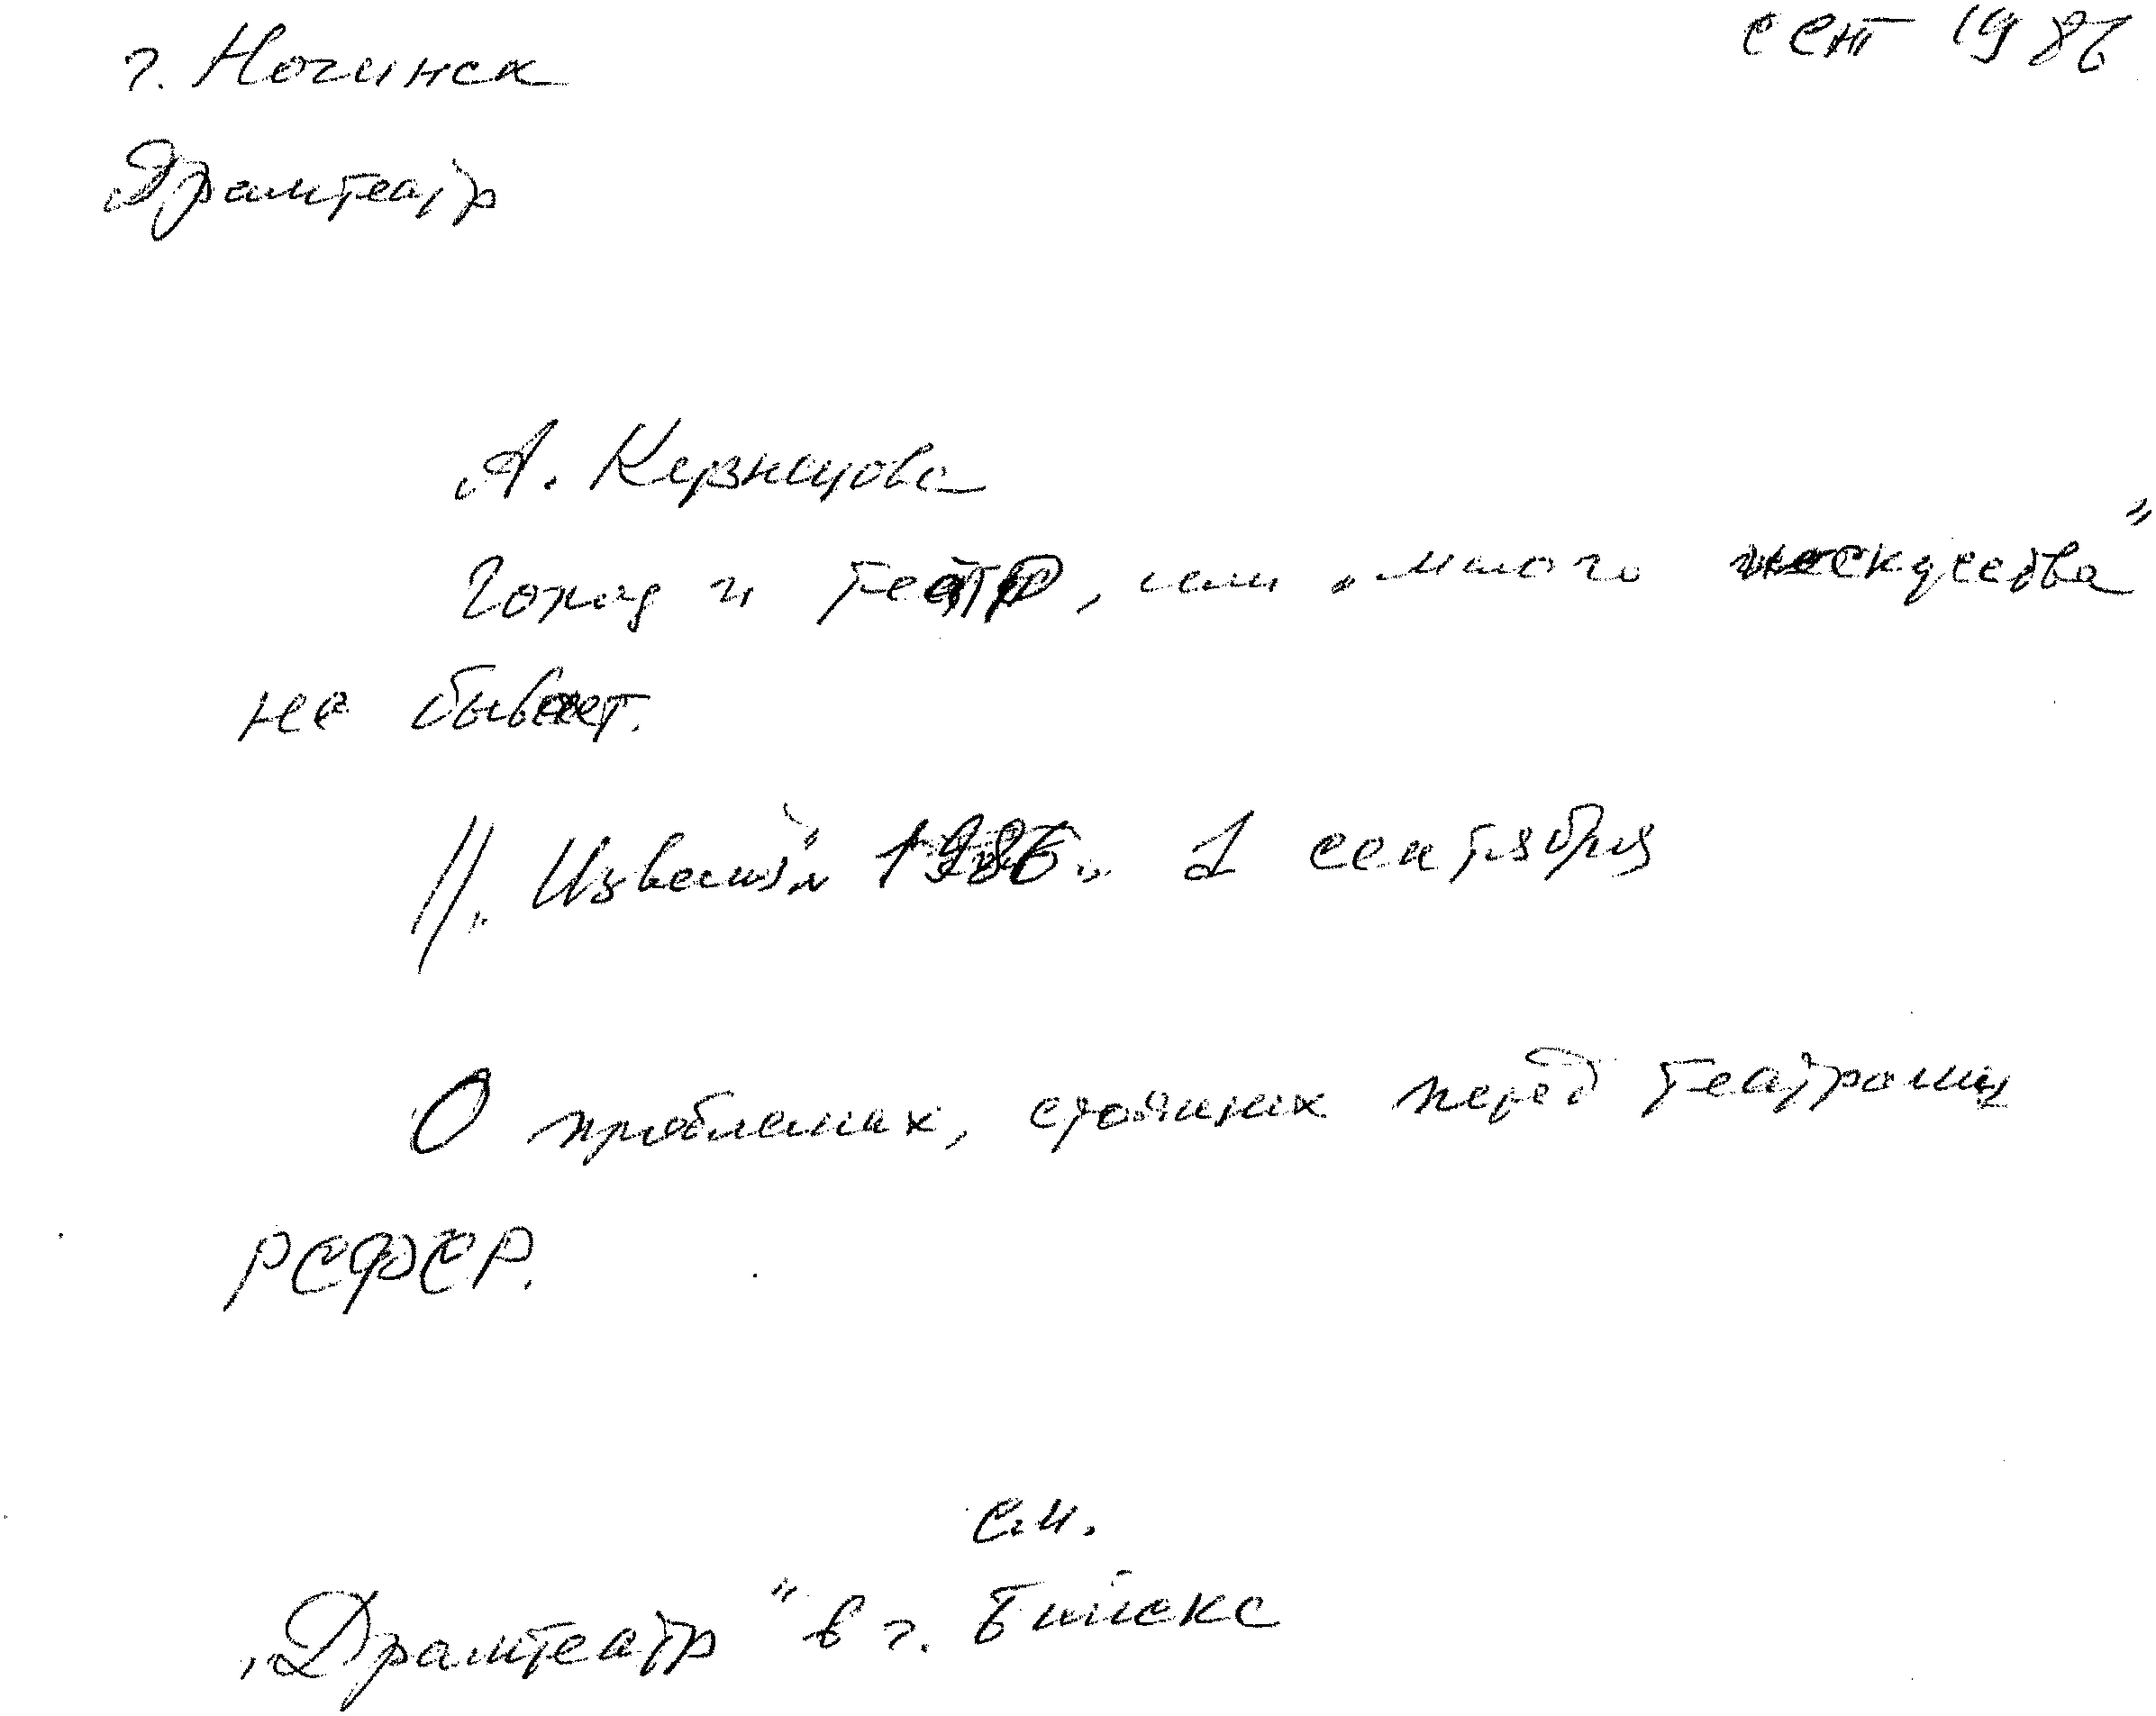 г. Ногинск
сент 1986
Драмтеатр
А. Кузнецова
Город и театр, или „много искусства"
не бывает.
// „Известия" 1986. 1 сентября
О проблемах, стоящих перед театрами
РСФСР.
см.
„Драмтеатр" в г. Бийске